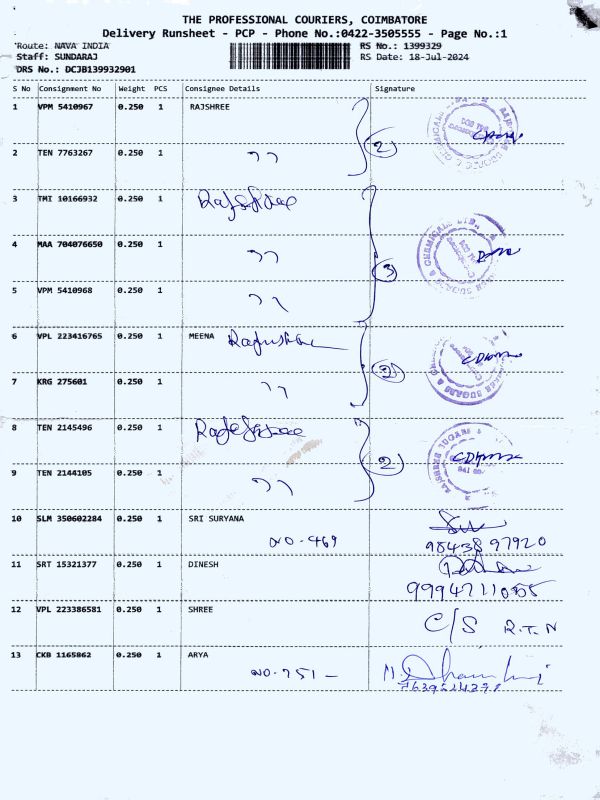 THE PROFESSIONAL COURIERS, COIMBATORE
Delivery Runsheet - PCP - Phone No.:0422-3505555 - Page No.:1
Route: NAVA INDIA RS No.: 1399329
Staff: SUNDARAJ RS Date: 18-Jul-2024
DRS No.: DCJB139932901
S No Consignment No Weight PCS Consignee Details Signature
1 VPM 5410967 0.250 1 RAJSHREE
2 TEN 7763267 0.250 1 " (2)
3 TMI 10166932 0.250 1
4 MAA 704076650 0.250 1 " (3)
5 VPM 5410968 0.250 1 "
6 VPL 223416765 0.250 1 MEENA
7 KRG 275601 0.250 1 " (2)
8 TEN 2145496 0.250 1
9 TEN 2144105 0.250 1 " (2)
10 SLM 350602284 0.250 1 SRI SURYANA
NO-469 98438 97920
11 SRT 15321377 0.250 1 DINESH
12 VPL 223386581 0.250 1 SHREE C/S R.T.N
13 CKB 1165862 0.250 1 ARYA
NO-751-